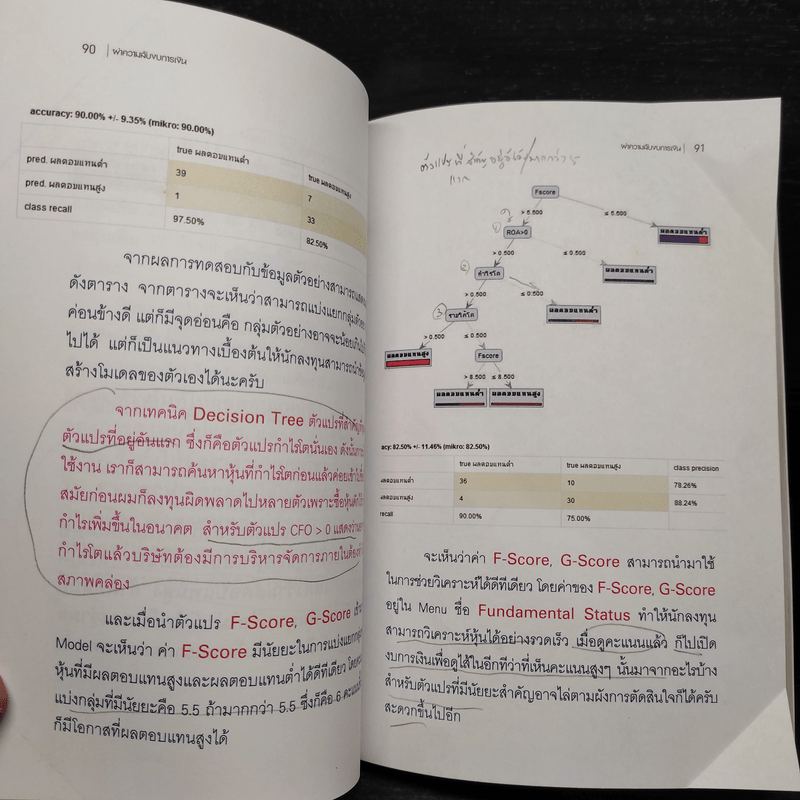 90 | ผ่าความลับงบการเงิน
accuracy: 90.00% +/- 9.35% (mikro: 90.00%)
true ผลตอบแทนต่ำ true ผลตอบแทนสูง
pred. ผลตอบแทนต่ำ 39 7
pred. ผลตอบแทนสูง 1 33
class recall 97.50% 82.50%
จากผลการทดสอบกับข้อมูลตัวอย่างสามารถแสดง
ดังตาราง จากตารางจะเห็นว่าสามารถแบ่งแยกกลุ่ม
ค่อนข้างดี แต่ก็มีจุดอ่อนคือ กลุ่มตัวอย่างอาจจะน้อยเกิน
ไปได้ แต่ก็เป็นแนวทางเบื้องต้นให้นักลงทุนสามารถนำ
สร้างโมเดลของตัวเองได้นะครับ
จากเทคนิค Decision Tree ตัวแปรที่สำคัญ
ตัวแปรที่อยู่อันแรก ซึ่งก็คือตัวแปรกำไรโตนั่นเอง ดังนั้น
ใช้งาน เราก็สามารถค้นหาหุ้นที่กำไรโตก่อนแล้วค่อย
สมัยก่อนผมก็ลงทุนผิดพลาดไปหลายตัวเพราะซื้อหุ้น
กำไรเพิ่มขึ้นในอนาคต สำหรับตัวแปร CFO > 0 แสดงว่า
กำไรโตแล้วบริษัทต้องมีการบริหารจัดการภายในต้อง
สภาพคล่อง
และเมื่อนำตัวแปร F-Score, G-Score
Model จะเห็นว่า ค่า F-Score มีนัยยะในการแบ่งแยก
หุ้นที่มีผลตอบแทนสูงและผลตอบแทนต่ำได้ดีทีเดียว
แบ่งกลุ่มที่มีนัยยะคือ 5.5 ถ้ามากกว่า 5.5 ซึ่งก็คือ 6
ก็มีโอกาสที่ผลตอบแทนสูงได้
ผ่าความลับงบการเงิน | 91
Fscore
> 5.500 ≤ 5.500
ROA>0 ผลตอบแทนต่ำ
> 0.500 ≤ 0.500
กำไรโต ผลตอบแทนต่ำ
> 0.500 ≤ 0.500
รายได้โต ผลตอบแทนต่ำ
> 0.500 ≤ 0.500
ผลตอบแทนสูง Fscore
> 8.500 ≤ 8.500
ผลตอบแทนต่ำ ผลตอบแทนสูง
accuracy: 82.50% +/- 11.46% (mikro: 82.50%)
true ผลตอบแทนต่ำ true ผลตอบแทนสูง class precision
ผลตอบแทนต่ำ 36 10 78.26%
ผลตอบแทนสูง 4 30 88.24%
recall 90.00% 75.00%
จะเห็นว่าค่า F-Score, G-Score สามารถนำมาใช้
ในการช่วยวิเคราะห์ได้ดีทีเดียว โดยค่าของ F-Score, G-Score
อยู่ใน Menu ชื่อ Fundamental Status ทำให้นักลงทุน
สามารถวิเคราะห์หุ้นได้อย่างรวดเร็ว เมื่อดูคะแนนแล้ว ก็ไปเปิด
งบการเงินเพื่อดูไส้ในอีกทีว่าที่เห็นคะแนนสูงๆ นั้นมาจากอะไรบ้าง
สำหรับตัวแปรที่มีนัยยะสำคัญอาจไล่ตามผังการตัดสินใจก็ได้ครับ
สะดวกขึ้นไปอีก